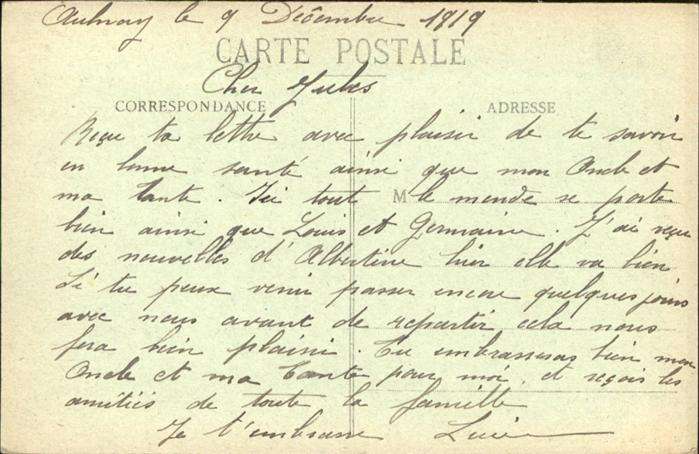 Aulnay le 9 Décembre 1919
CARTE POSTALE
Cher Jules
CORRESPONDANCE
ADRESSE
Reçu ta lettre avec plaisir de te savoir
en bonne santé ainsi que mon Oncle et
ma tante. Ici tout M le monde se porte
bien ainsi que Louis et Germaine. J'ai reçu
des nouvelles d'Albertine hier elle va bien
Si tu peux venir passer encore quelques jours
avec nous avant de repartir cela nous
fera bien plaisir. Tu embrasseras bien mon
Oncle et ma Tante pour moi, et reçois les
amitiés de toute la famille
Je t'embrasse Lucie